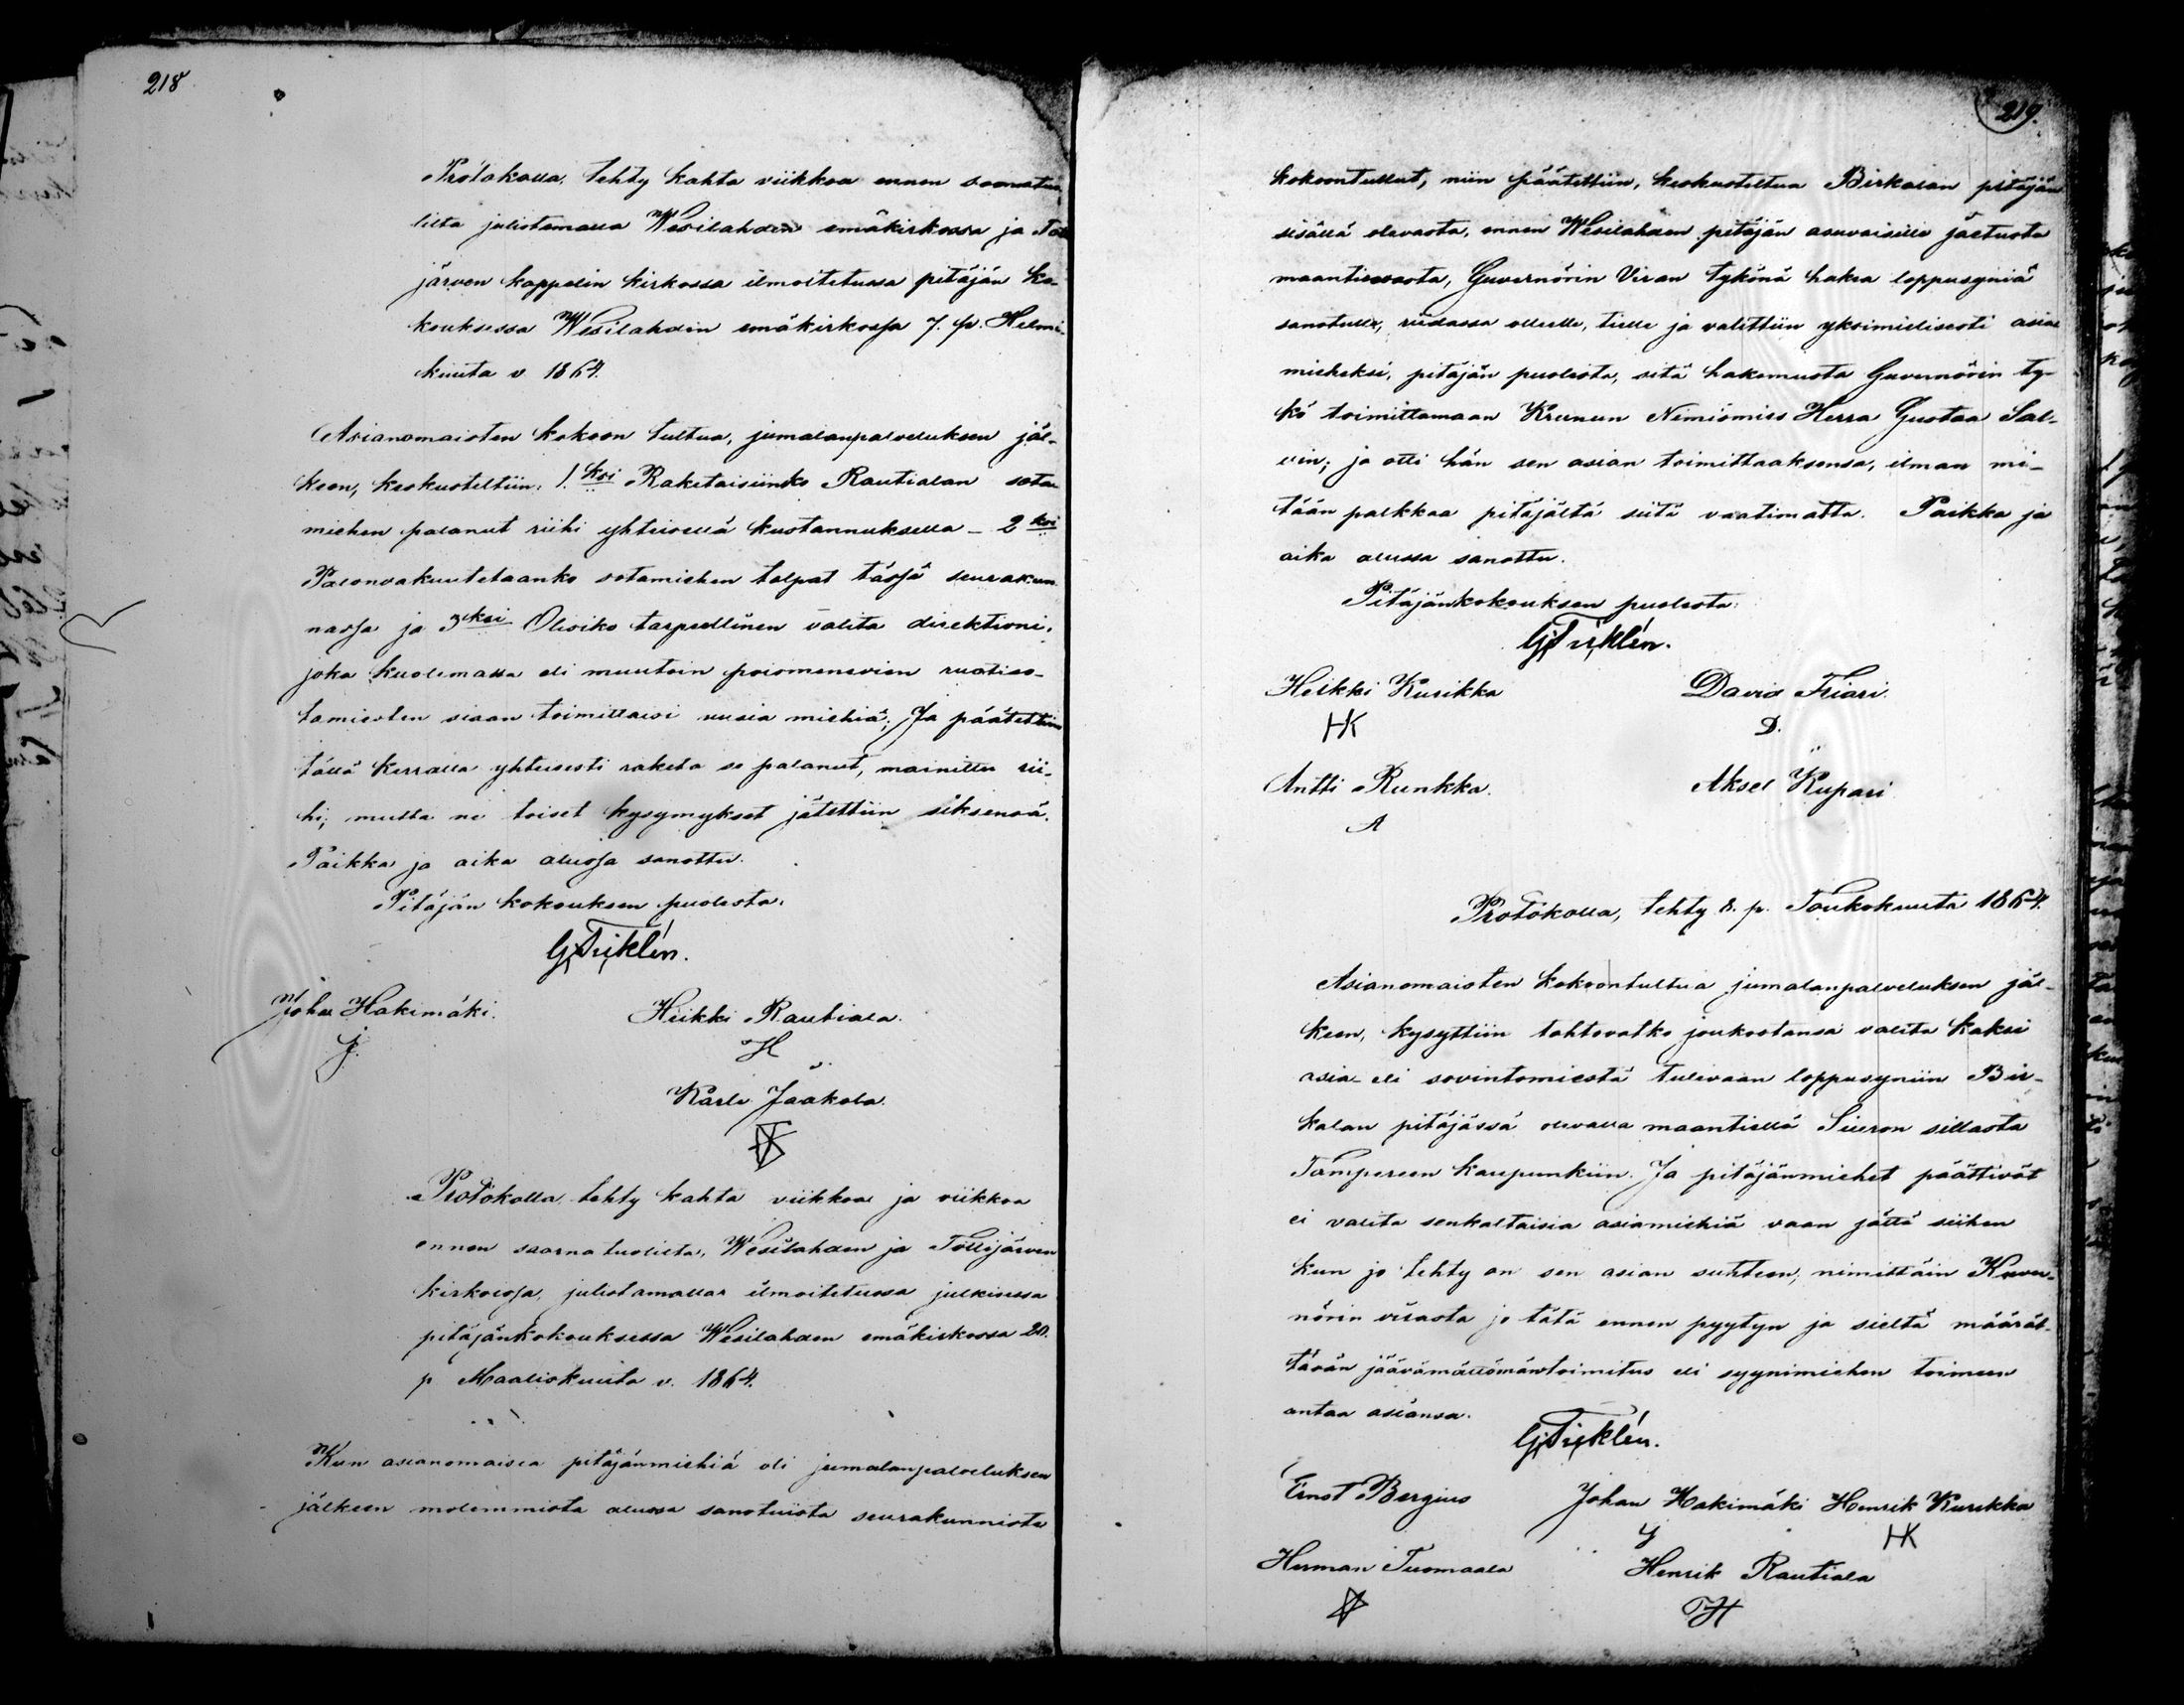 218
Protokolla, tehty kahta viikkoa ennen saarnatuo
lilta julistamalla Wesilahden emäkirkossa ja Tot
järven kappelin kirkossa ilmoitetussa pitäjän ko-
kouksessa Wesilahden emäkirkossa 7. p. Helmi-
kuuta v. 1864.
Asianomaisten kokoon tultua, jumalanpalveluksen jäl-
keen, keskusteltiin: 1.ksi Raketaisiinko Rautialan sota-
miehen palanut riihi yhteisellä kustannuksella – 2ksi
Palonvakuutetaanko sotamiehen talpat tässä seurakun
nassa ja 3ksi Olisiko tarpeellinen valita direktioni,
joka kuolemalla eli muutoin poismenevien ruotiso-
tamiesten siaan toimittaisi uusia miehiä; Ja päätettiin
tällä kerralla yhteisesti raketa se palanut, mainittu rii-
hi; mutta ne toiset kysymykset jätettiin siksensä.
Paikka ja aika alussa sanottu.
Pitäjän kokouksen puolesta:
G. Ticklén.
Johan Hakimäki. Heikki Rautiala.
J. H
Karle Jaakola.
Protokolla, tehty kahta viikkoa ja viikkoa
ennen saarnatuolilta, Wesilahden ja Töllijärven
kirkoissa, julistamallas ilmoitetussa julkisessa
pitäjänkokouksessa Wesilahden emäkirkossa 20.
p Maaliskuuta v. 1864.
Kun asianomaisia pitäjänmiehiä oli jumalanpalveluksen
jälkeen molemmista alussa sanotuista seurakunnista
219.
kokoontullut, niin päätettiin, keskusteltua Birkalan pitäjän
sisällä olevasta, ennen Wesilahden pitäjän asuvaisille jaetusta
maantieosasta, Guvernörin Viran tykönä hakea loppusyniä
sanotulle, riidassa olleelle, tielle ja valittiin yksimielisesti asia
mieheksi, pitäjän puolesta, sitä hakemusta Guvernörin ty-
kö toimittamaan Krunun Nimismies Herra Gustaa Sal-
vin; ja otti hän sen asian toimittaaksensa, ilman mi-
tään palkkaa pitäjältä siitä vaatimatta. Paikka ja
aika alussa sanottu.
Pitäjänkokouksen puolesta:
G. Ticklén.
Heikki Kurikka David Friari.
HK D.
Antti Runkka. Aksel Kupari
A
Protokolla, tehty 8. p. Toukokuuta 1864.
Asianomaisten kokoontultua jumalanpalveluksen jäl-
keen, kysyttiin tahtovatko joukostansa valita kaksi
asia- eli sovintomiestä tulevaan loppusyniin Bir-
kalan pitäjässä olevalla maantiellä Siuron sillasta
Tampereen kaupunkiin. Ja pitäjänmiehet päättivät
ei valita senkaltaisia asiamiehiä vaan jättä siihen
kun jo tehty on sen asian suhteen; nimittäin Kuver-
nörin virasta jo tätä ennen pyytyn ja sieltä määrät-
tävän jäävämättömän toimitus eli syynimiehen toimeen
antaa asiansa.
G. Ticklén.
Ernst Bergius Johan Hakimäki Henrik Kurikka
J HK
Herman Tuomaala Henrik Rautiala
H